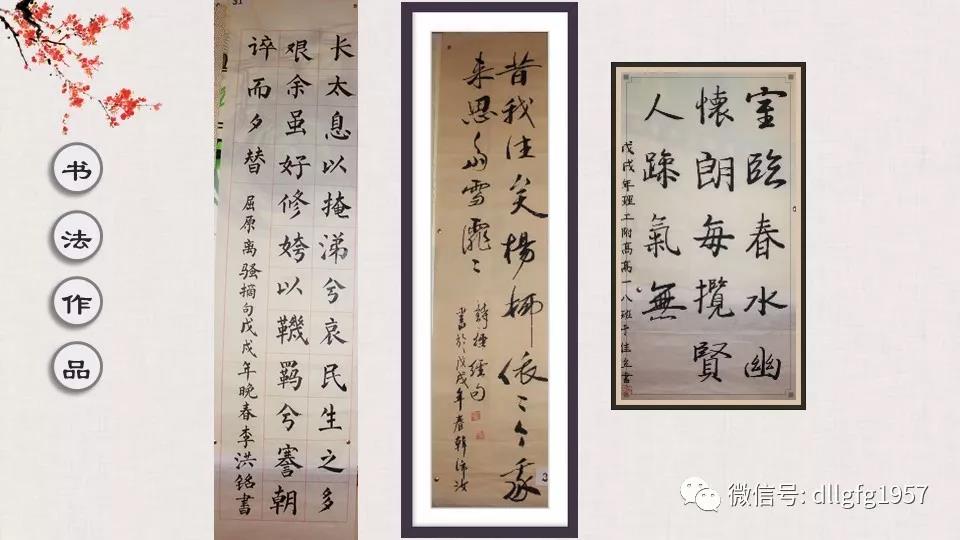 书
法
作
品
31
长太息以掩涕兮哀民生之多
艰余虽好修姱以鞿羁兮謇朝
谇而夕替
屈原离骚摘句戊戌年晚春李洪銘書
昔我往矣楊柳依〻今我
来思雨雪霏〻
書於戊戌年春韓
室臨春水幽
懷朗每攬賢
人躁氣無
戊戌年理工附高高一八班于佳立書
微信号: dllgfg1957